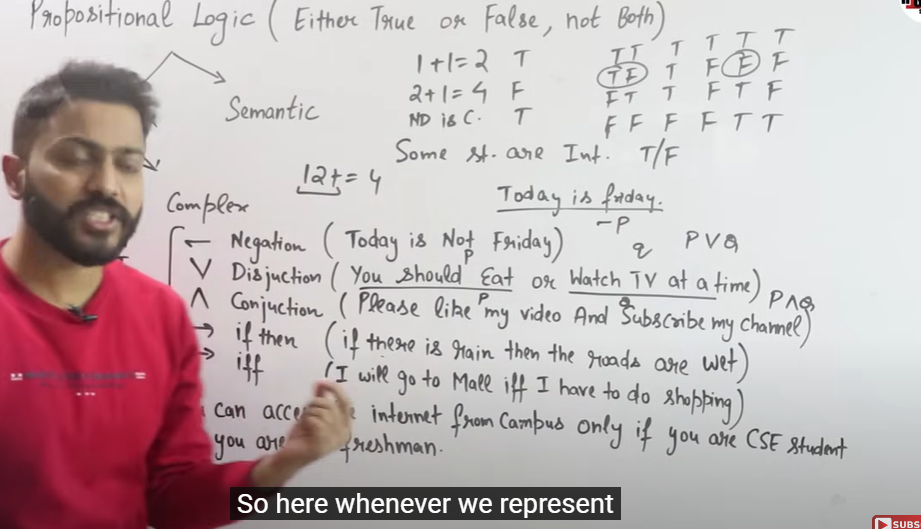 Propositional Logic ( Either True or False, not Both)
Semantic
1+1=2 T
2+1=4 F
ND is C. T
T T T T T T
T F T F F F
F T T F T F
F F F F T T
Some st. are Int. T/F
12+=4
Today is friday.
¬P
Complex
¬ Negation ( Today is Not Friday)
P q PVQ
V Disjuction ( You should Eat or Watch TV at a time)
P Q P∧Q
∧ Conjuction ( Please like my video And Subscribe my channel)
→ if then (if there is rain then the roads are wet)
iff (I will go to Mall iff I have to do shopping)
can internet from Campus only if you are CSE student
you are freshman.
So here whenever we represent
SUBS